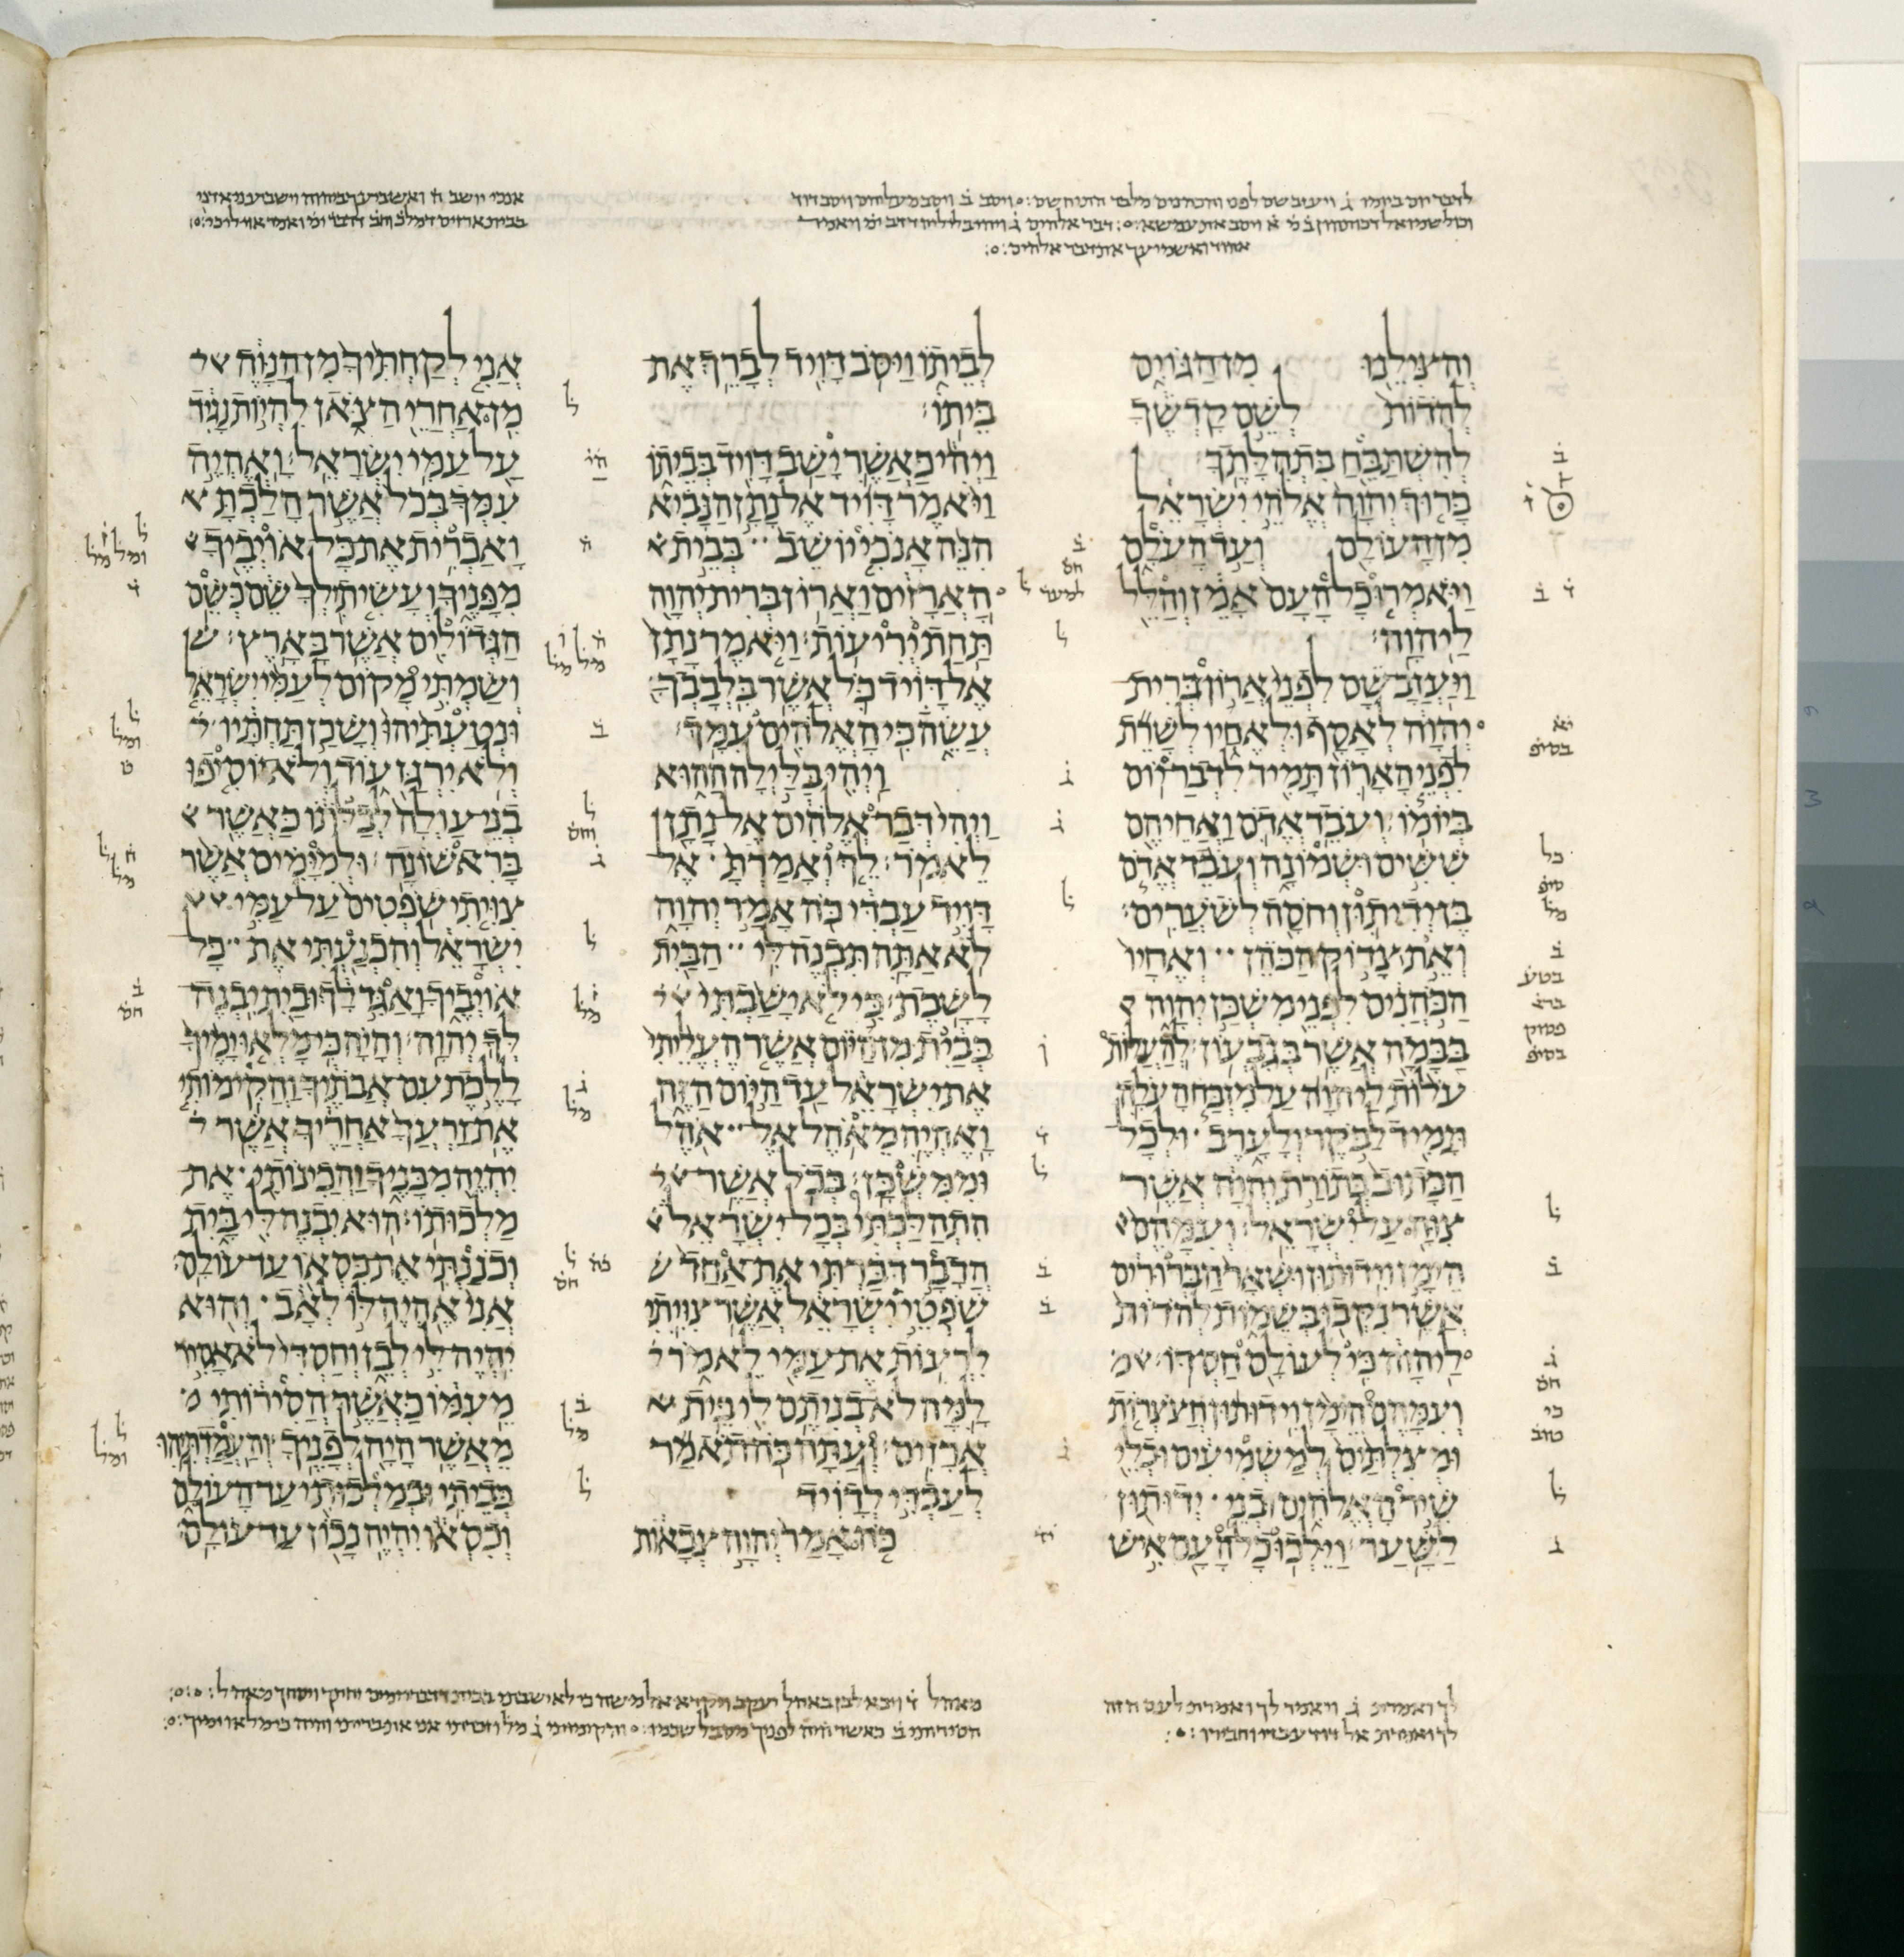 וְהַצִּילֵנוּ מִן הַגּוֹיִם
לְהֹדוֹת לְשֵׁם קָדְשֶׁךָ
לְהִשְׁתַּבֵּחַ בִּתְהִלָּתֶךָ
בָּרוּךְ יְהוָה אֱלֹהֵי יִשְׂרָאֵל
מִן הָעוֹלָם וְעַד הָעֹלָם
וַיֹּאמְרוּ כָל הָעָם אָמֵן וְהַלֵּל
לַיהוָה׃
וַיַּעֲזָב שָׁם לִפְנֵי אֲרוֹן בְּרִית
יְהוָה לְאָסָף וּלְאֶחָיו לְשָׁרֵת
לִפְנֵי הָאָרוֹן תָּמִיד לִדְבַר יוֹם
בְּיוֹמוֹ׃ וְעֹבֵד אֱדֹם וַאֲחֵיהֶם
שִׁשִּׁים וּשְׁמוֹנָה וְעֹבֵד אֱדֹם
בֶּן יְדִיתוּן וְחֹסָה לְשֹׁעֲרִים׃
וְאֵת צָדוֹק הַכֹּהֵן וְאֶחָיו
הַכֹּהֲנִים לִפְנֵי מִשְׁכַּן יְהוָה
בַּבָּמָה אֲשֶׁר בְּגִבְעוֹן׃ לְהַעֲלוֹת
עֹלוֹת לַיהוָה עַל מִזְבַּח הָעֹלָה
תָּמִיד לַבֹּקֶר וְלָעָרֶב וּלְכָל
הַכָּתוּב בְּתוֹרַת יְהוָה אֲשֶׁר
צִוָּה עַל יִשְׂרָאֵל׃ וְעִמָּהֶם
הֵימָן וִידוּתוּן וּשְׁאָר הַבְּרוּרִים
אֲשֶׁר נִקְּבוּ בְּשֵׁמוֹת לְהֹדוֹת
לַיהוָה כִּי לְעוֹלָם חַסְדּוֹ׃
וְעִמָּהֶם הֵימָן וִידוּתוּן חֲצֹצְרוֹת
וּמְצִלְתַּיִם לְמַשְׁמִיעִים וּכְלֵי
שִׁיר הָאֱלֹהִים וּבְנֵי יְדוּתוּן
לַשָּׁעַר׃ וַיֵּלְכוּ כָל הָעָם אִישׁ
לְבֵיתוֹ וַיִּסֹּב דָּוִיד לְבָרֵךְ אֶת
בֵּיתוֹ׃
וַיְהִי כַּאֲשֶׁר יָשַׁב דָּוִיד בְּבֵיתוֹ
וַיֹּאמֶר דָּוִיד אֶל נָתָן הַנָּבִיא
הִנֵּה אָנֹכִי יוֹשֵׁב בְּבֵית
הָאֲרָזִים וַאֲרוֹן בְּרִית יְהוָה
תַּחַת יְרִיעוֹת׃ וַיֹּאמֶר נָתָן
אֶל דָּוִיד כֹּל אֲשֶׁר בִּלְבָבְךָ
עֲשֵׂה כִּי הָאֱלֹהִים עִמָּךְ׃
וַיְהִי בַּלַּיְלָה הַהוּא
וַיְהִי דְּבַר אֱלֹהִים אֶל נָתָן
לֵאמֹר׃ לֵךְ וְאָמַרְתָּ אֶל
דָּוִיד עַבְדִּי כֹּה אָמַר יְהוָה
לֹא אַתָּה תִּבְנֶה לִּי הַבַּיִת
לָשָׁבֶת׃ כִּי לֹא יָשַׁבְתִּי
בְּבַיִת מִן הַיּוֹם אֲשֶׁר הֶעֱלֵיתִי
אֶת יִשְׂרָאֵל עַד הַיּוֹם הַזֶּה
וָאֶהְיֶה מֵאֹהֶל אֶל אֹהֶל
וּמִמִּשְׁכָּן׃ בְּכֹל אֲשֶׁר
הִתְהַלַּכְתִּי בְּכָל יִשְׂרָאֵל
הֲדָבָר דִּבַּרְתִּי אֶת אַחַד
שֹׁפְטֵי יִשְׂרָאֵל אֲשֶׁר צִוִּיתִי
לִרְעוֹת אֶת עַמִּי לֵאמֹר
לָמָּה לֹא בְנִיתֶם לִי בֵּית
אֲרָזִים׃ וְעַתָּה כֹּה תֹאמַר
לְעַבְדִּי לְדָוִיד
כֹּה אָמַר יְהוָה צְבָאוֹת
אֲנִי לְקַחְתִּיךָ מִן הַנָּוֶה
מִן אַחֲרֵי הַצֹּאן לִהְיוֹת נָגִיד
עַל עַמִּי יִשְׂרָאֵל׃ וָאֶהְיֶה
עִמְּךָ בְּכֹל אֲשֶׁר הָלַכְתָּ
וָאַכְרִית אֶת כָּל אוֹיְבֶיךָ
מִפָּנֶיךָ וְעָשִׂיתִי לְךָ שֵׁם כְּשֵׁם
הַגְּדוֹלִים אֲשֶׁר בָּאָרֶץ׃
וְשַׂמְתִּי מָקוֹם לְעַמִּי יִשְׂרָאֵל
וּנְטַעְתִּיהוּ וְשָׁכַן תַּחְתָּיו
וְלֹא יִרְגַּז עוֹד וְלֹא יוֹסִיפוּ
בְנֵי עַוְלָה לְבַלֹּתוֹ כַּאֲשֶׁר
בָּרִאשׁוֹנָה׃ וּלְמִיָּמִים אֲשֶׁר
צִוִּיתִי שֹׁפְטִים עַל עַמִּי
יִשְׂרָאֵל וְהִכְנַעְתִּי אֶת כָּל
אוֹיְבֶיךָ וָאַגִּד לָךְ וּבַיִת יִבְנֶה
לְּךָ יְהוָה׃ וְהָיָה כִּי מָלְאוּ יָמֶיךָ
לָלֶכֶת עִם אֲבֹתֶיךָ וַהֲקִימוֹתִי
אֶת זַרְעֲךָ אַחֲרֶיךָ אֲשֶׁר
יִהְיֶה מִבָּנֶיךָ וַהֲכִינוֹתִי אֶת
מַלְכוּתוֹ׃ הוּא יִבְנֶה לִּי בָּיִת
וְכֹנַנְתִּי אֶת כִּסְאוֹ עַד עוֹלָם׃
אֲנִי אֶהְיֶה לּוֹ לְאָב וְהוּא
יִהְיֶה לִּי לְבֵן וְחַסְדִּי לֹא אָסִיר
מֵעִמּוֹ כַּאֲשֶׁר הֲסִירוֹתִי
מֵאֲשֶׁר הָיָה לְפָנֶיךָ׃ וְהַעֲמַדְתִּיהוּ
בְּבֵיתִי וּבְמַלְכוּתִי עַד הָעוֹלָם
וְכִסְאוֹ יִהְיֶה נָכוֹן עַד עוֹלָם׃
לך ואמרת ג ויאמר לך ואמרת לעם הזה
לך ואמרת אל דוד עבדי וחבירו